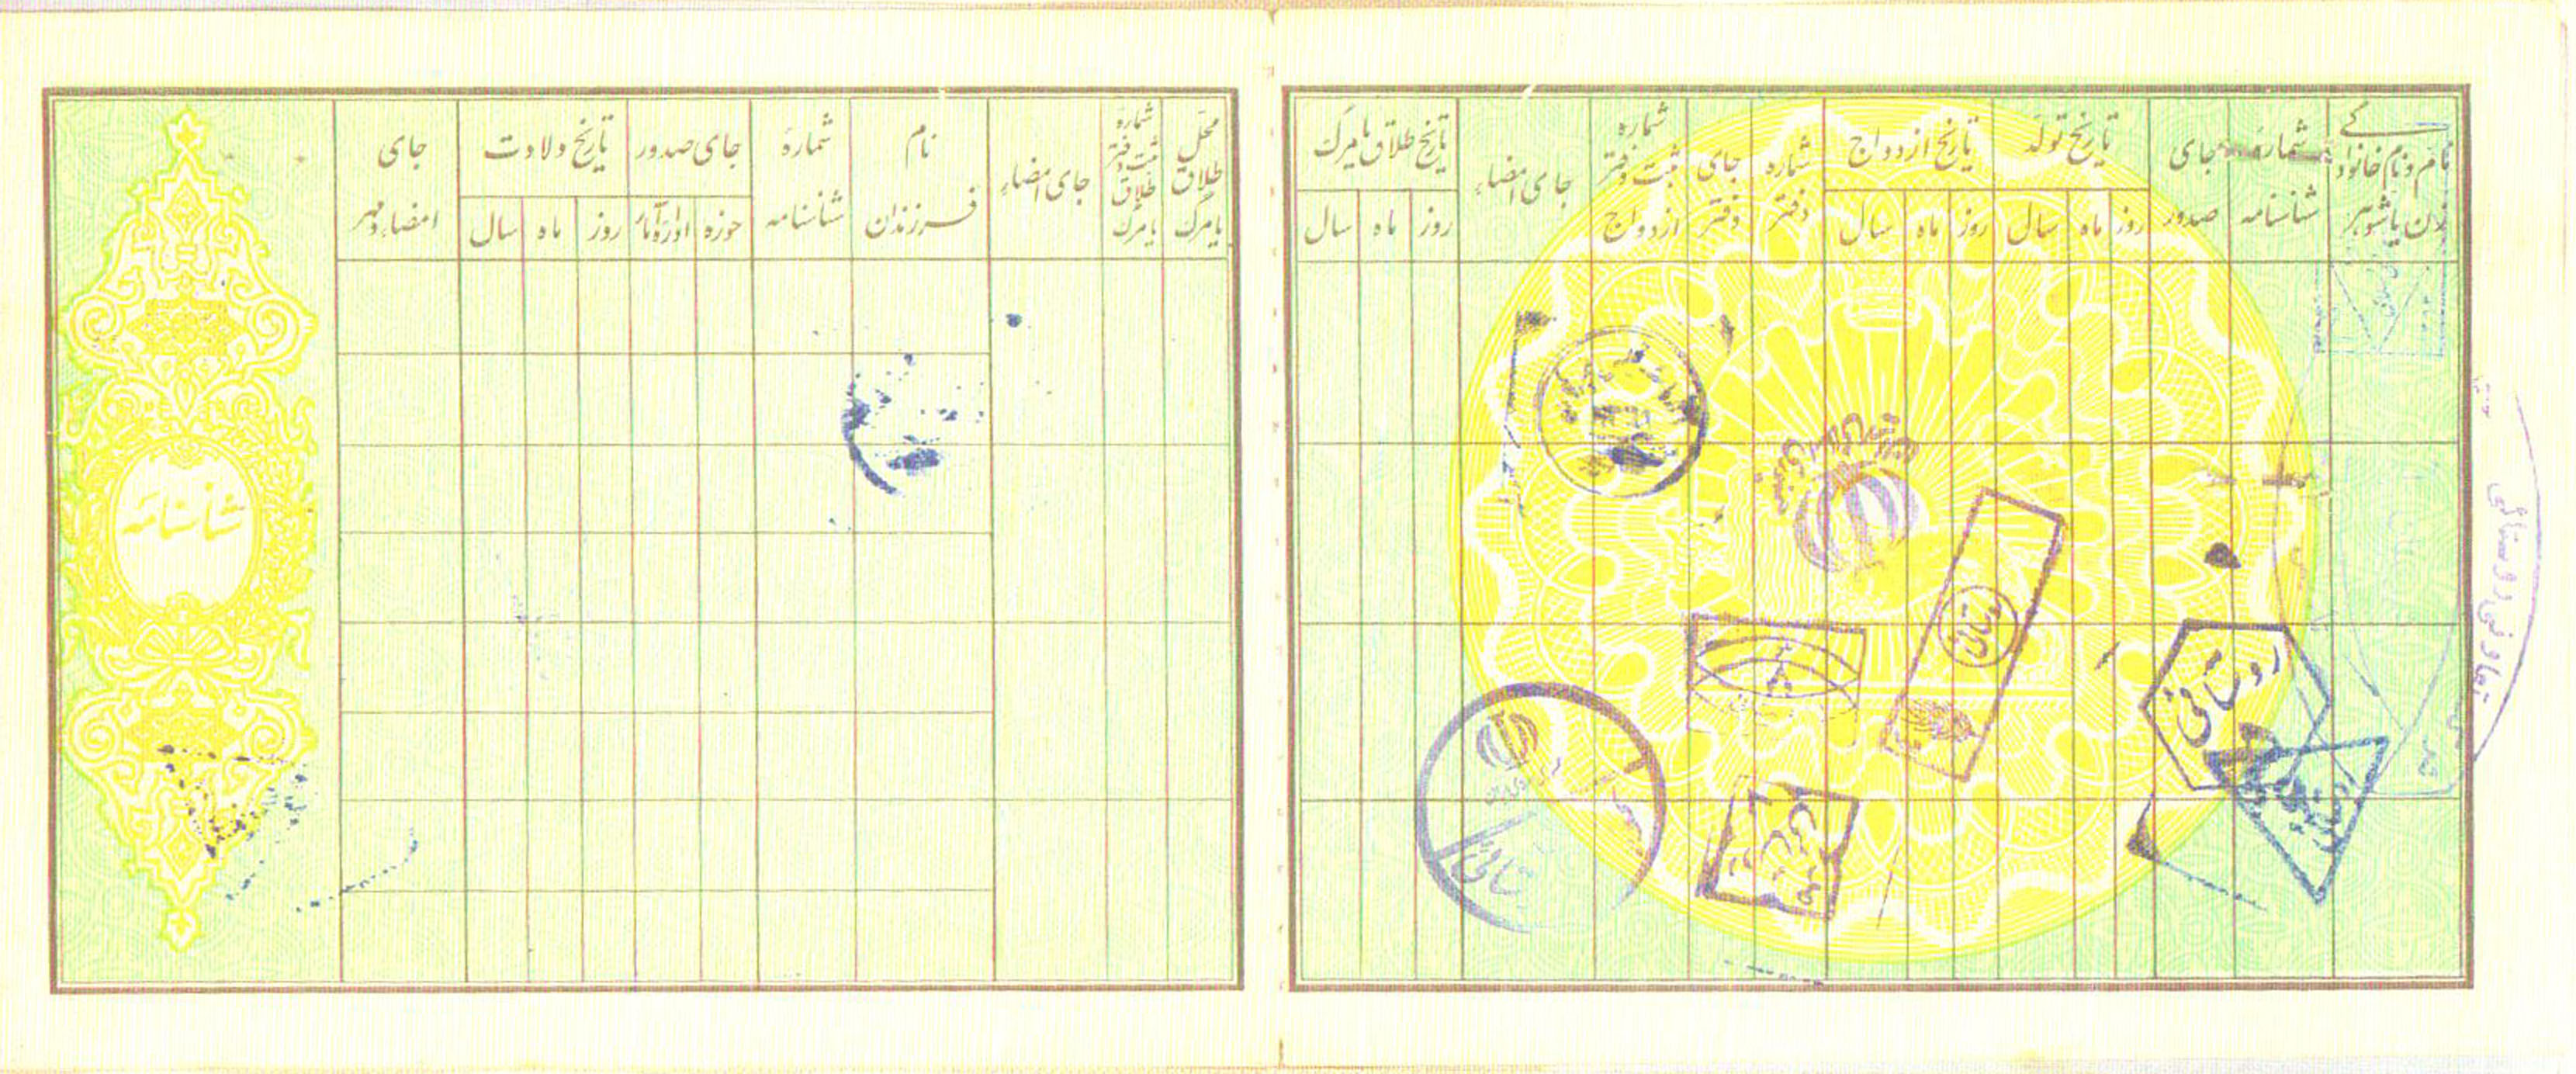 نام و نام خانوادگی
زن یا شوهر
شماره
شناسنامه
جای
صدور
تاریخ تولد
روز
ماه
سال
تاریخ ازدواج
روز
ماه
سال
شماره
دفتر
جای
دفتر
شماره
ثبت دفتر
ازدواج
جای امضاء
تاریخ طلاق یا مرگ
روز
ماه
سال
محل
طلاق
یا مرگ
شماره
ثبت دفتر
طلاق
یا مرگ
جای امضاء
نام
فرزندان
شمارهٔ
شناسنامه
جای صدور
حوزه
اداره آمار
تاریخ ولادت
روز
ماه
سال
جای
امضاء و مهر
شناسنامه
روستائی
روستائی
تعاونی روستائی